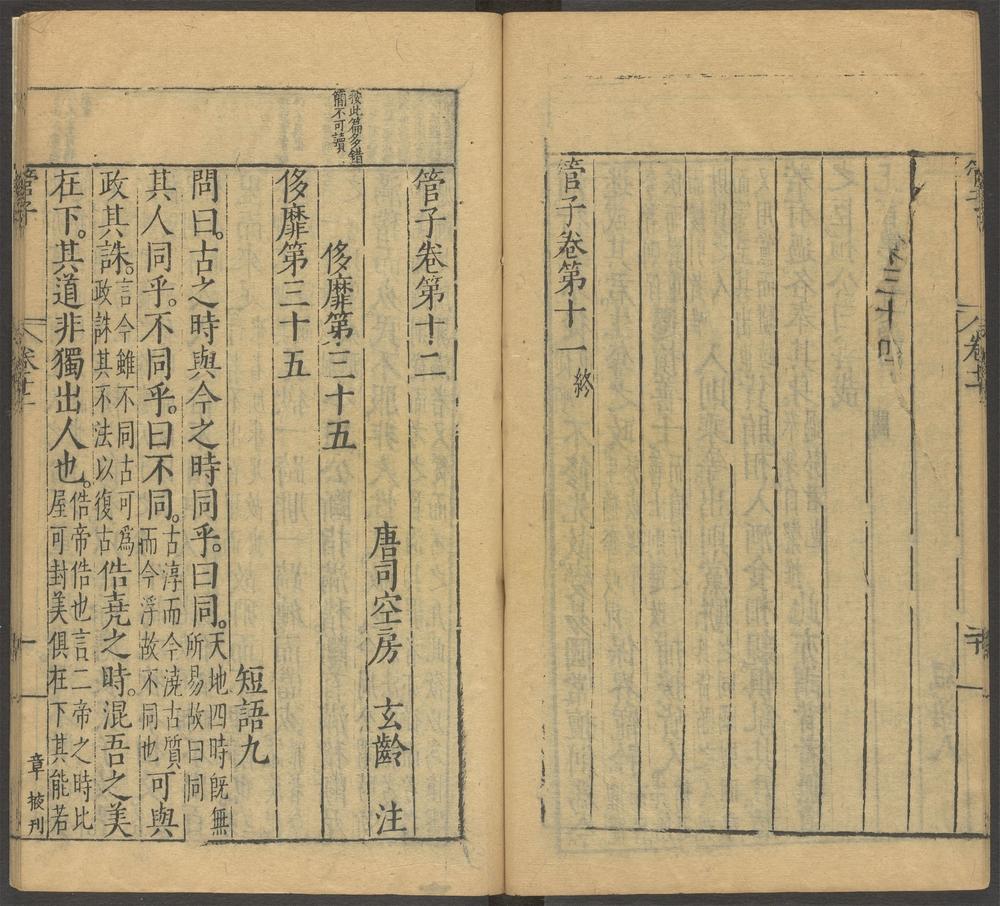 管子卷第十一 終
按此篇多錯
簡不可讀
管子卷第十二
唐司空房 玄齡 注
侈靡第三十五
侈靡第三十五
短語九
問曰。古之時與今之時同乎。曰同。天地四時旣無所易故曰同
其人同乎。不同乎。曰不同。古淳而今澆古質而今浮故不同也可與
政其誅。言今雖不同古可爲政誅其不法以復古俈堯之時。混吾之美
在下。其道非獨出人也。俈帝俈也言二帝之時比屋可封美俱在下其能若
管子
卷十二
一
章掖刋